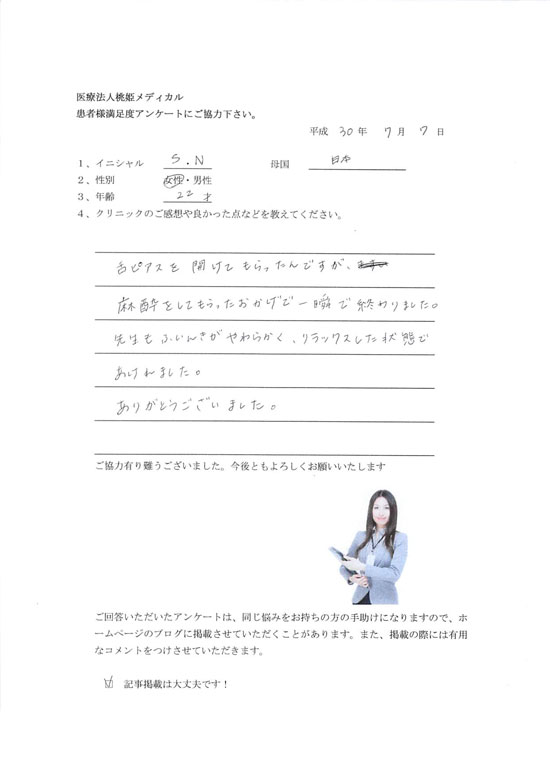 医療法人桃姫メディカル
患者様満足度アンケートにご協力下さい。
平成 30 年 7 月 7 日
1、イニシャル S.N 母国 日本
2、性別 女性・男性
3、年齢 22 才
4、クリニックのご感想や良かった点などを教えてください。
舌ピアスを開けてもらったんですが、
麻酔をしてもらったおかげで一瞬で終わりました。
先生もふいんきがやわらかく、リラックスした状態で
あけれました。
ありがとうございました。
ご協力有り難うございました。今後ともよろしくお願いいたします
ご回答いただいたアンケートは、同じ悩みをお持ちの方の手助けになりますので、ホ
ームページのブログに掲載させていただくことがあります。また、掲載の際には有用
なコメントをつけさせていただきます。
☑ 記事掲載は大丈夫です！